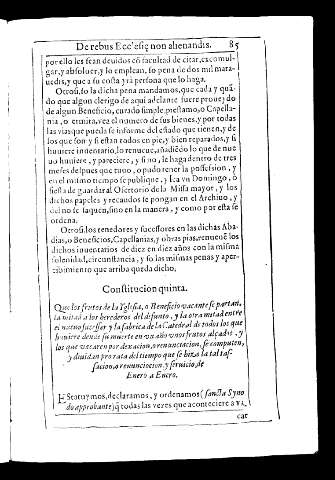 De rebus Ecclesiæ non alienandis. 85
por ello les sean deuidos cō facultad de citar, excomul-
gar, y absoluer, y lo emplean, so pena de dos mil mara-
uedis, y que a su costa yrà persona que lo haga.
Otrosi, so la dicha pena mandamos, que cada y quā-
do que algun clerigo de aqui adelante fuere proueydo
de algun Beneficio, curado simple, prestamo, o Capella-
nia, o ermita, vea el numero de sus bienes, y por todas
las vias que pueda se informe del estado que tienen, y de
los que son y si estan todos en pie, y bien reparados, y si
huuiere inuentario, lo renueue, añadiēdo lo que de nue
uo huuiere, y pareciere, y si no, le haga dentro de tres
meses despues que tuuo, o pudo tener la possession, y
en el mismo tiempo se publique, y lea vn Domingo, o
fiesta de guardar al Ofertorio de la Missa mayor, y los
dichos papeles y recaudos se pongan en el Archiuo, y
del no se saquen, sino en la manera, y como por esta se
ordena.
Otrosi, los tenedores y sucessores en las dichas Aba-
dias, o Beneficios, Capellanias, y obras pias, renueuē los
dichos inuentarios de diez en diez años con la misma
solenidad, circunstancia, y so las mismas penas y aper-
cibimiento que arriba queda dicho.
Constitucion quinta.
Que los frutos de la Yglesia, o Beneficio vacante se partan,
la mitad a los herederos del difunto, y la otra mitad entre
el nueuo sucessor y la fabrica de la Catedral de todos los que
huuiere desde su muerte en vn año vnos frutos alçados, y
los que vacaren por dexacion, o renunciacion, se computen,
y diuidan pro rata del tiempo que se hizo la tal tas-
sacion, o renunciacion, y seruicio, de
Enero a Enero.
EStatuymos, declaramos, y ordenamos (sancta Syno
do approbante) q̄ todas las vezes que aconteciere a va-
car